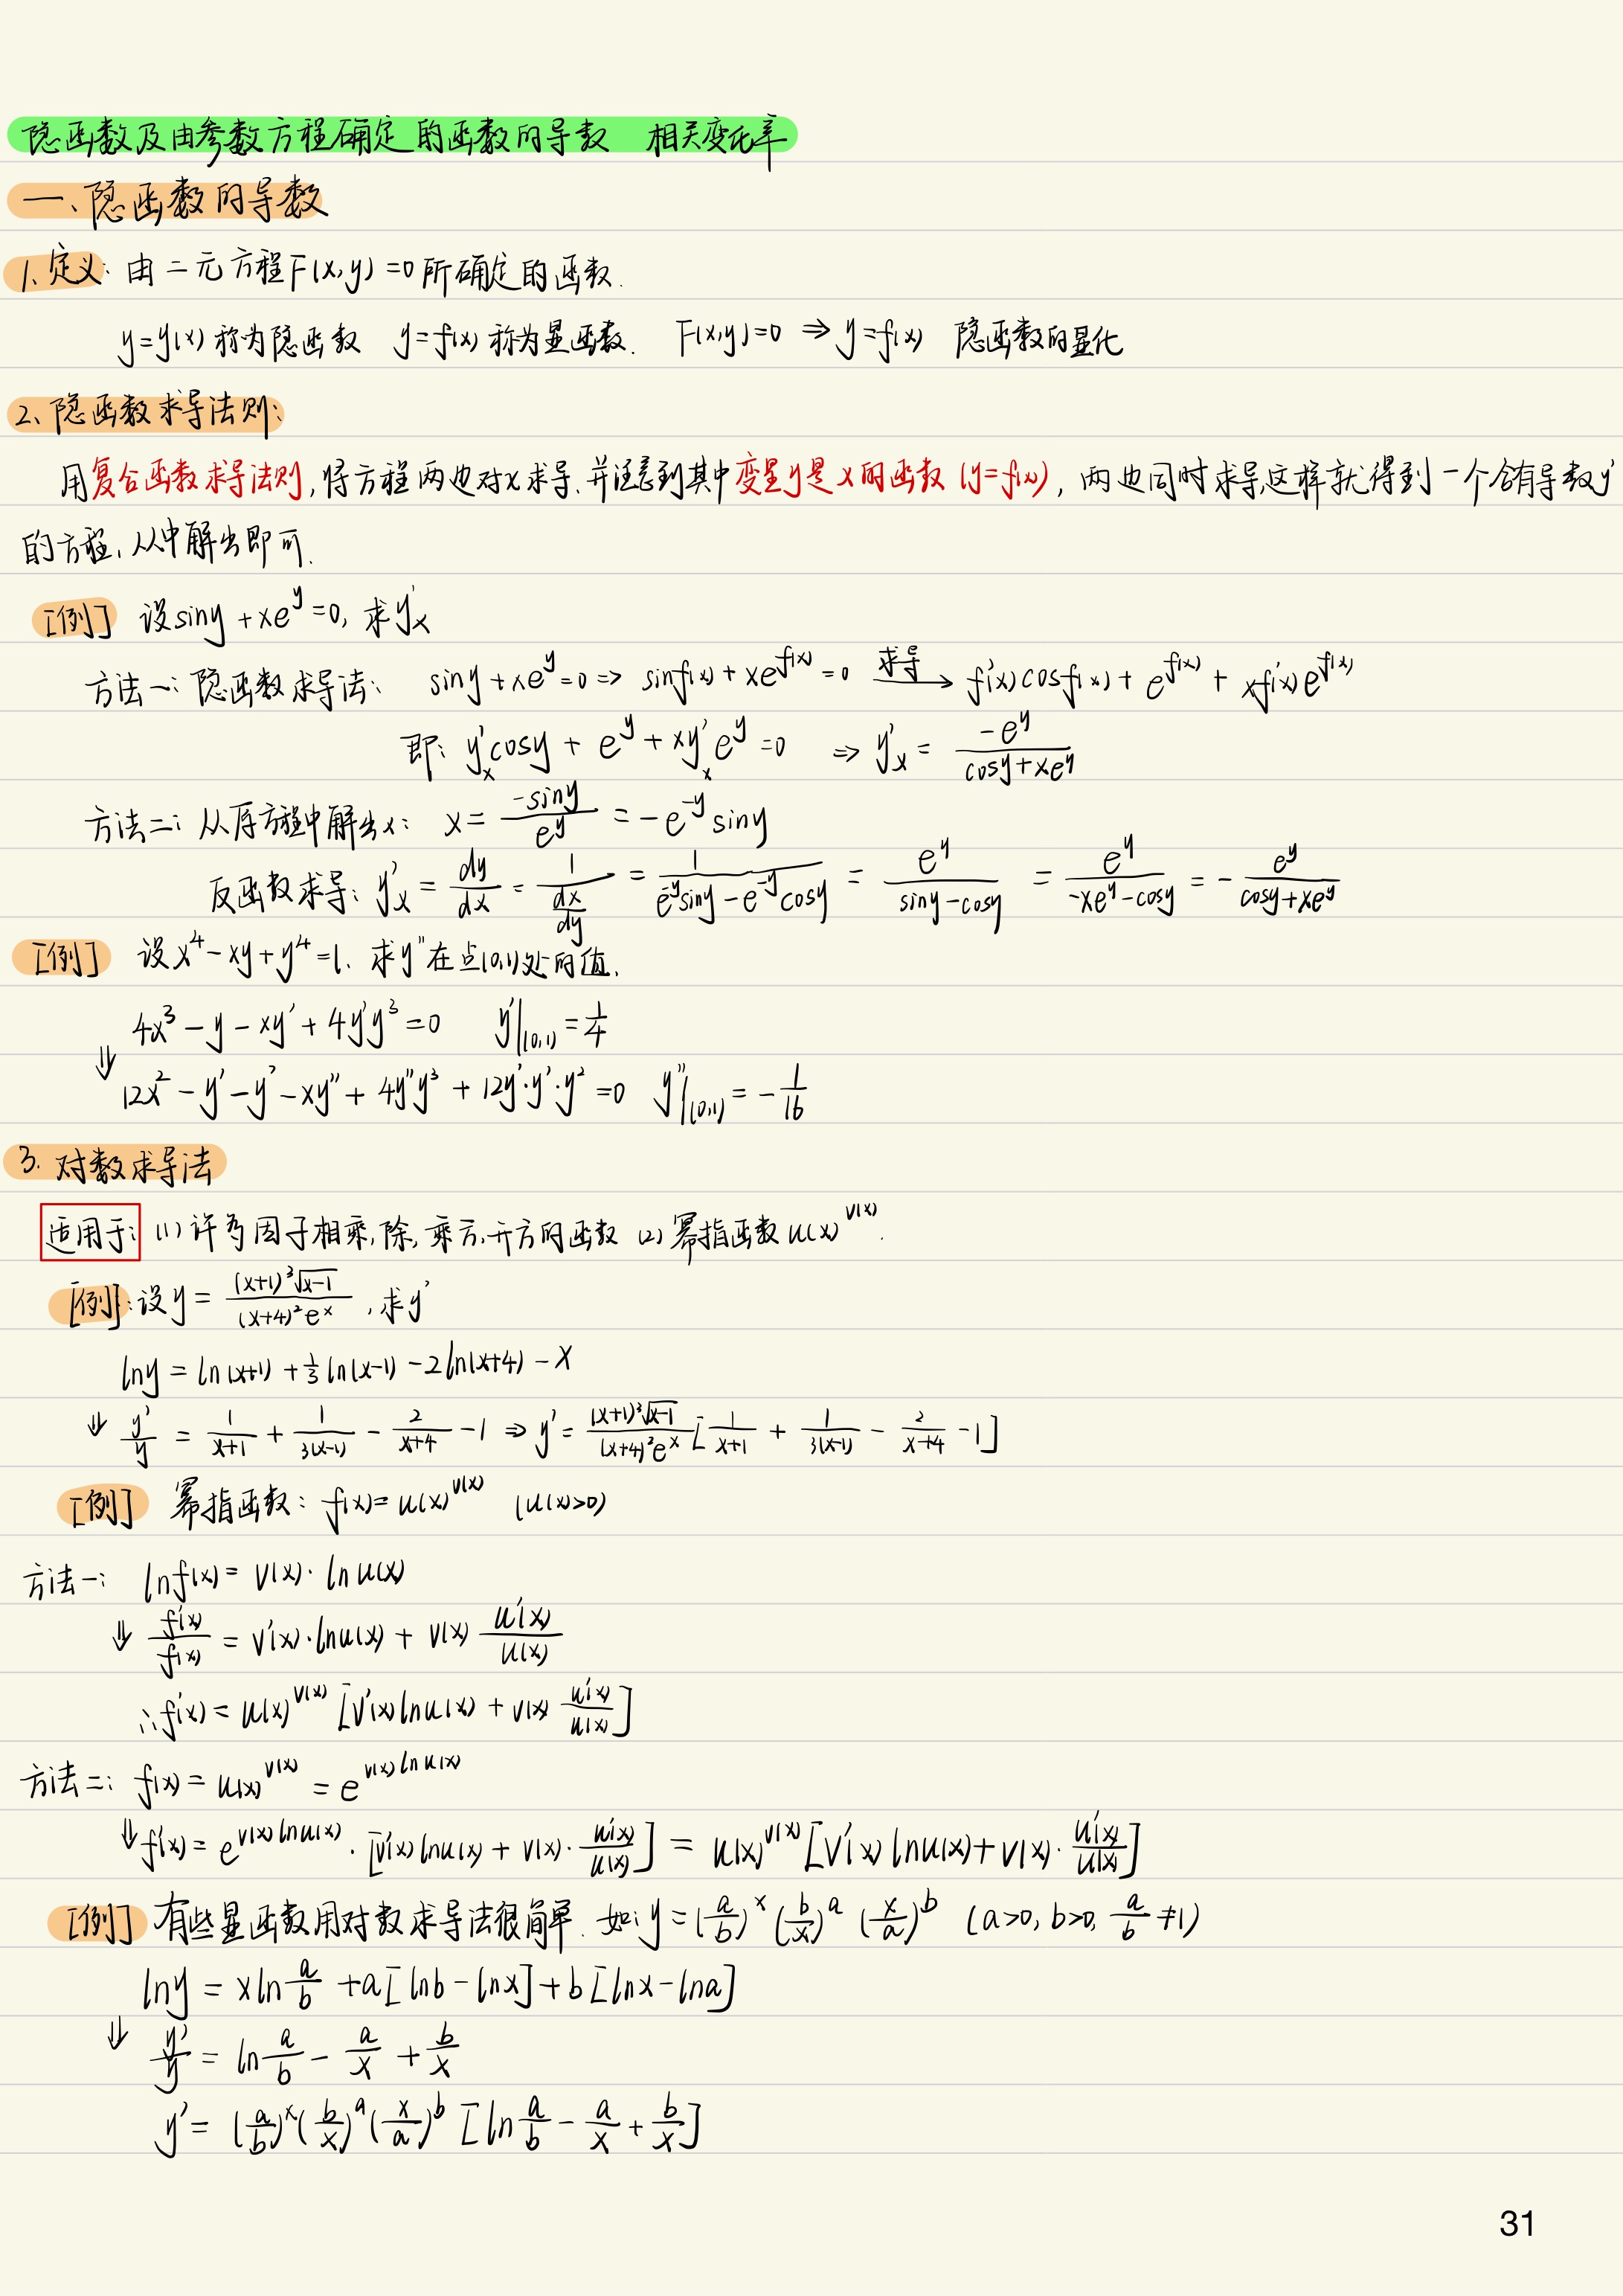 隐函数及由参数方程确定的函数的导数 相关变化率
一、隐函数的导数
1、定义: 由二元方程F(x,y)=0所确定的函数.
y=y(x)称为隐函数 y=f(x)称为显函数. F(x,y)=0 ⇒ y=f(x) 隐函数的显化
2、隐函数求导法则:
用复合函数求导法则,将方程两边对x求导.并注意到其中变量y是x的函数(y=f(x)),两边同时求导,这样就得到一个含有导数y'
的方程,从中解出即可.
[例] 设siny+xe^y=0, 求y'x
方法一: 隐函数求导法: siny+xe^y=0 ⇒ sinf(x)+xe^f(x)=0 求导→ f'(x)cosf(x)+e^f(x)+xf'(x)e^f(x)
即: y'x cosy+e^y+xy'x e^y=0 ⇒ y'x = -e^y/(cosy+xe^y)
方法二: 从原方程中解出x: x = -siny/e^y = -e^-y siny
反函数求导: y'x = dy/dx = 1/(dx/dy) = 1/(e^-y siny-e^-y cosy) = e^y/(siny-cosy) = e^y/(-xe^y-cosy) = - e^y/(cosy+xe^y)
[例] 设x^4-xy+y^4=1. 求y''在点(0,1)处的值.
4x^3-y-xy'+4y'y^3=0 y'|(0,1) = 1/4
⇓ 12x^2-y'-y'-xy''+4y''y^3+12y'·y'·y^2=0 y''|(0,1) = - 1/16
3. 对数求导法
适用于: (1) 许多因子相乘,除,乘方,开方的函数 (2) 幂指函数u(x)^v(x).
[例]: 设y = (x+1)³√(x-1)/((x+4)^2 e^x), 求y'
lny = ln(x+1)+1/3 ln(x-1)-2ln(x+4)-x
⇓ y'/y = 1/(x+1) + 1/(3(x-1)) - 2/(x+4) -1 ⇒ y' = (x+1)³√(x-1)/((x+4)^2 e^x) [1/(x+1) + 1/(3(x-1)) - 2/(x+4) -1]
[例] 幂指函数: f(x)=u(x)^v(x) (u(x)>0)
方法一: lnf(x)=v(x)·lnu(x)
⇓ f'(x)/f(x) = v'(x)·lnu(x)+v(x) u'(x)/u(x)
∴f'(x)=u(x)^v(x) [v'(x)lnu(x)+v(x) u'(x)/u(x)]
方法二: f(x)=u(x)^v(x) = e^v(x)lnu(x)
⇓ f'(x)=e^v(x)lnu(x)·[v'(x)lnu(x)+v(x)·u'(x)/u(x)] = u(x)^v(x) [v'(x)lnu(x)+v(x)·u'(x)/u(x)]
[例] 有些显函数用对数求导法很简单. 如: y=(a/b)^x (b/x)^a (x/a)^b (a>0, b>0, a/b ≠1)
lny = xln a/b +a[lnb-lnx]+b[lnx-lna]
⇓ y'/y = ln a/b - a/x + b/x
y' = (a/b)^x (b/x)^a (x/a)^b [ln a/b - a/x + b/x]
31